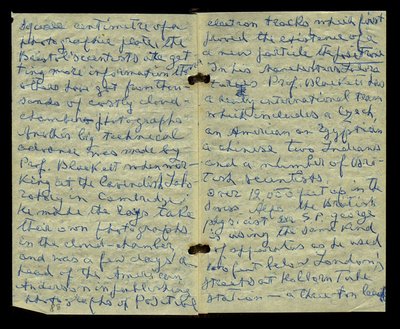 square centimetre of a
photographic plate the
Bristol scientists are get
ting more information than
others have got from thou
sands of costly cloud-
chamber photographs
Another big technical
advance was made by
Prof. Blackett when wor
king at the Cavendish Labo
ratory in Cambridge
He made the rays take
their own photographs
in the cloud-chamber
and was a few days a
head of the American
Anderson in publishing
photographs of Positive
88
electron tracks which first
proved the existence of a
a new particle the positron
In his Manchester Labora
tories Prof. Blackett has
a newly international team
which includes a Czech,
an American an Egyptian
a Chinese two Indians
and a number of Bri-
tish Scientists
Over 12,000 feet up in the
Swiss Alps the British
physicist Dr E.P. George
is using the same kind
of apparatus as he used
100 feet below London's
streets at Holborn Tube
Station — a three-ton lead